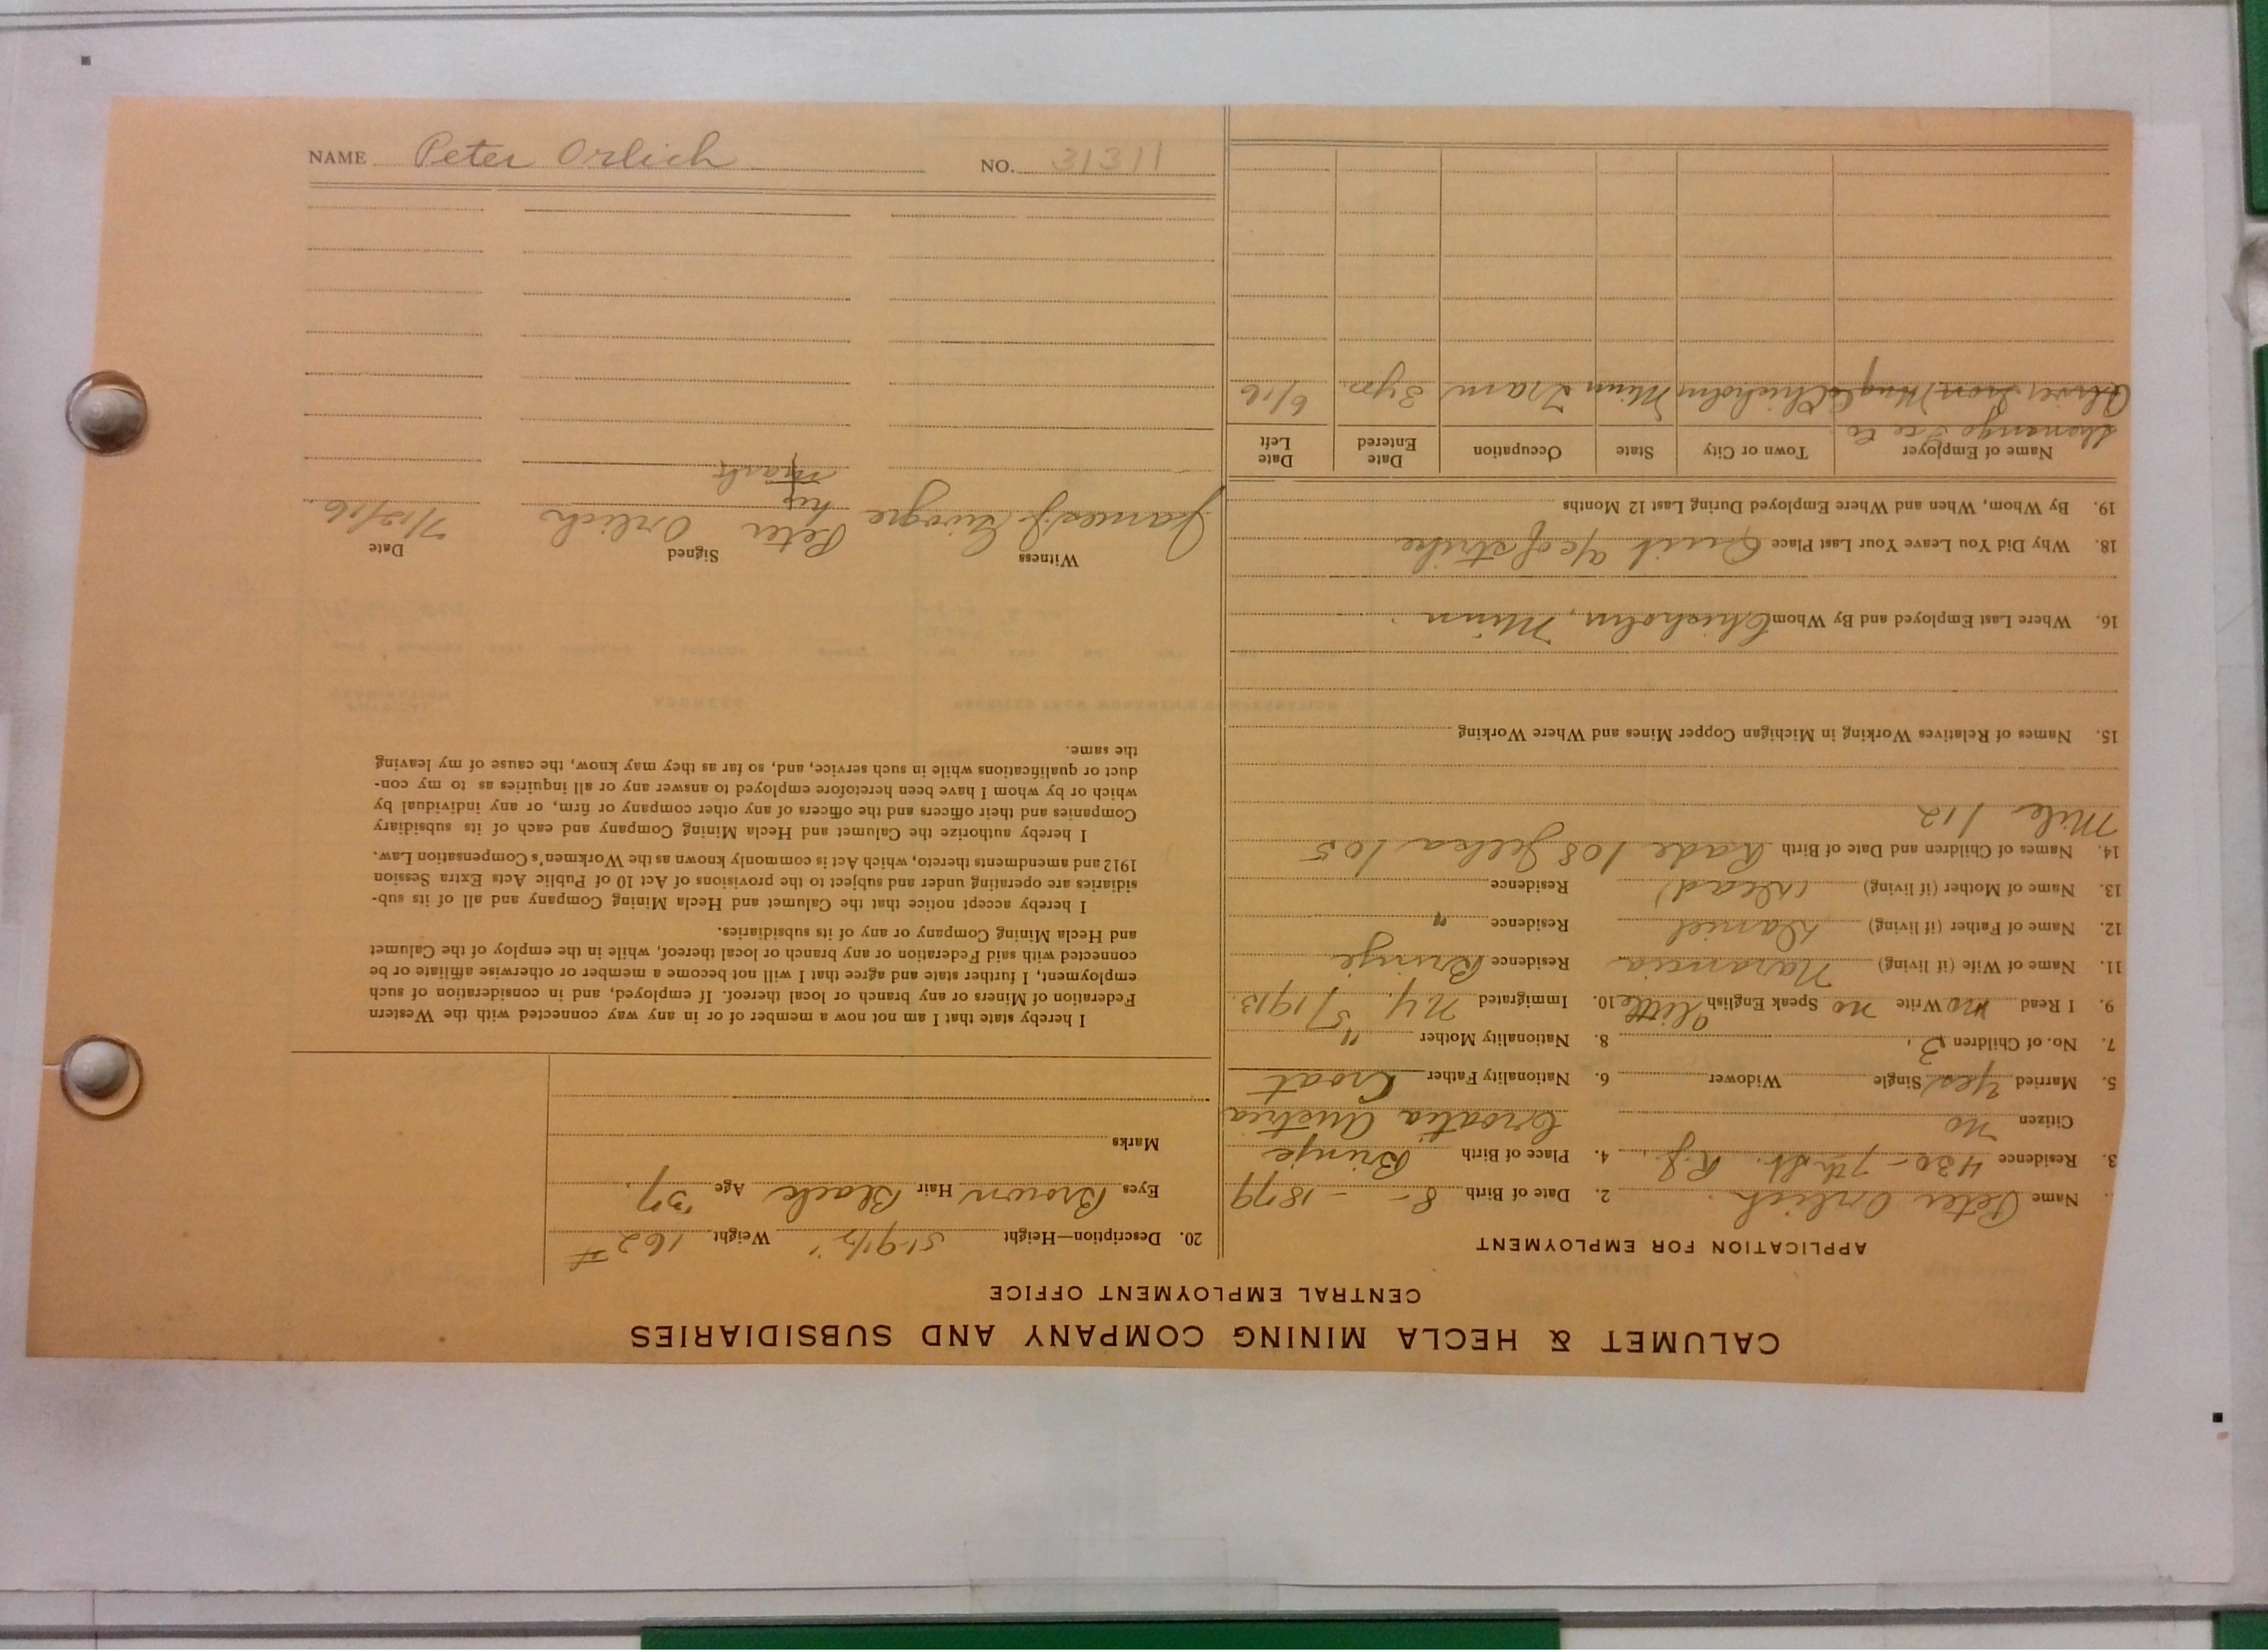 NAME Peter Orlich NO. 31311
CALUMET & HECLA MINING COMPANY AND SUBSIDIARIES
CENTRAL EMPLOYMENT OFFICE
APPLICATION FOR EMPLOYMENT
Name Peter Orlich 2. Date of Birth 8 - - 1879
3. Residence 430 - 7th St. 4. Place of Birth Brinje
Citizen no Croatia Austria
5. Married Yes Single Widower 6. Nationality Father Croat
7. No. of Children 3. 8. Nationality Mother "
9. I Read no Write no Speak English little 10. Immigrated N.Y. 5/1913
11. Name of Wife (if living) Residence Brinje
12. Name of Father (if living) Daniel Residence "
13. Name of Mother (if living) (dead) Residence
14. Names of Children and Date of Birth Rade 1/08 Jelka 1/05
Mile 1/12
15. Names of Relatives Working in Michigan Copper Mines and Where Working
16. Where Last Employed and By Whom Chisholm, Minn
18. Why Did You Leave Your Last Place Quit a/c of strike
19. By Whom, When and Where Employed During Last 12 Months
Name of Employer Town or City State Occupation Date Entered Date Left
Oliver Iron Mng Co Chisholm Minn Tram 3 yrs 6/16
20. Description—Height 5' 9 1/2" Weight 162 #
Eyes Brown Hair Black Age 37
Marks
I hereby state that I am not now a member of or in any way connected with the Western
Federation of Miners or any branch or local thereof. If employed, and in consideration of such
employment, I further state and agree that I will not become a member or otherwise affiliate or be
connected with said Federation or any branch or local thereof, while in the employ of the Calumet
and Hecla Mining Company or any of its subsidiaries.
I hereby accept notice that the Calumet and Hecla Mining Company and all of its sub-
sidiaries are operating under and subject to the provisions of Act 10 of Public Acts Extra Session
1912 and amendments thereto, which Act is commonly known as the Workmen's Compensation Law.
I hereby authorize the Calumet and Hecla Mining Company and each of its subsidiary
Companies and their officers and the officers of any other company or firm, or any individual by
which or by whom I have been heretofore employed to answer any or all inquiries as to my con-
duct or qualifications while in such service, and, so far as they may know, the cause of my leaving
the same.
Witness Signed Date
James J. Peter his Orlich 7/12/16
mark